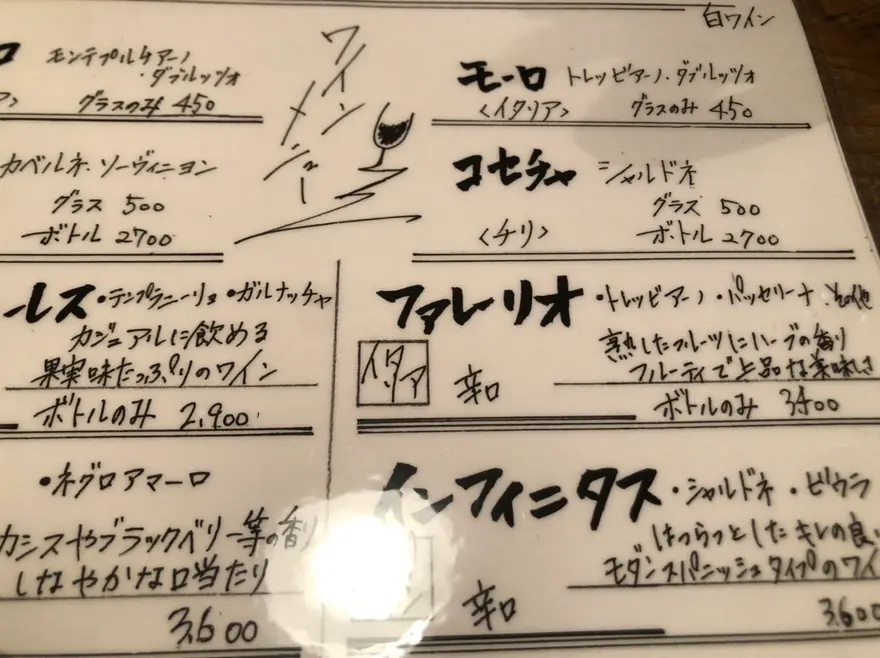 白ワイン
ワインメニュー
モンテプルチアーノ
・ダブルッツォ
グラスのみ 450
カベルネ・ソーヴィニヨン
グラス 500
ボトル 2700
ルス・テンプラニーリョ・ガルナッチャ
カジュアルに飲める
果実味たっぷりのワイン
ボトルのみ 2,900
・ネグロアマーロ
カシスやブラックベリー等の香り
しなやかな口当たり
3,600
モーロ トレッビアーノ・ダブルッツォ
<イタリア> グラスのみ 450
コセチャ シャルドネ
グラス 500
<チリ> ボトル 2700
ファレーリオ ・トレッビアーノ・パッセリーナ その他
熟したフルーツにハーブの香り
イタリア 辛口 フルーティで上品な美味しさ
ボトルのみ 3400
インフィニタス ・シャルドネ・ビウラ
はつらつとしたキレの良い
モダンスパニッシュタイプのワイ
辛口
3,600